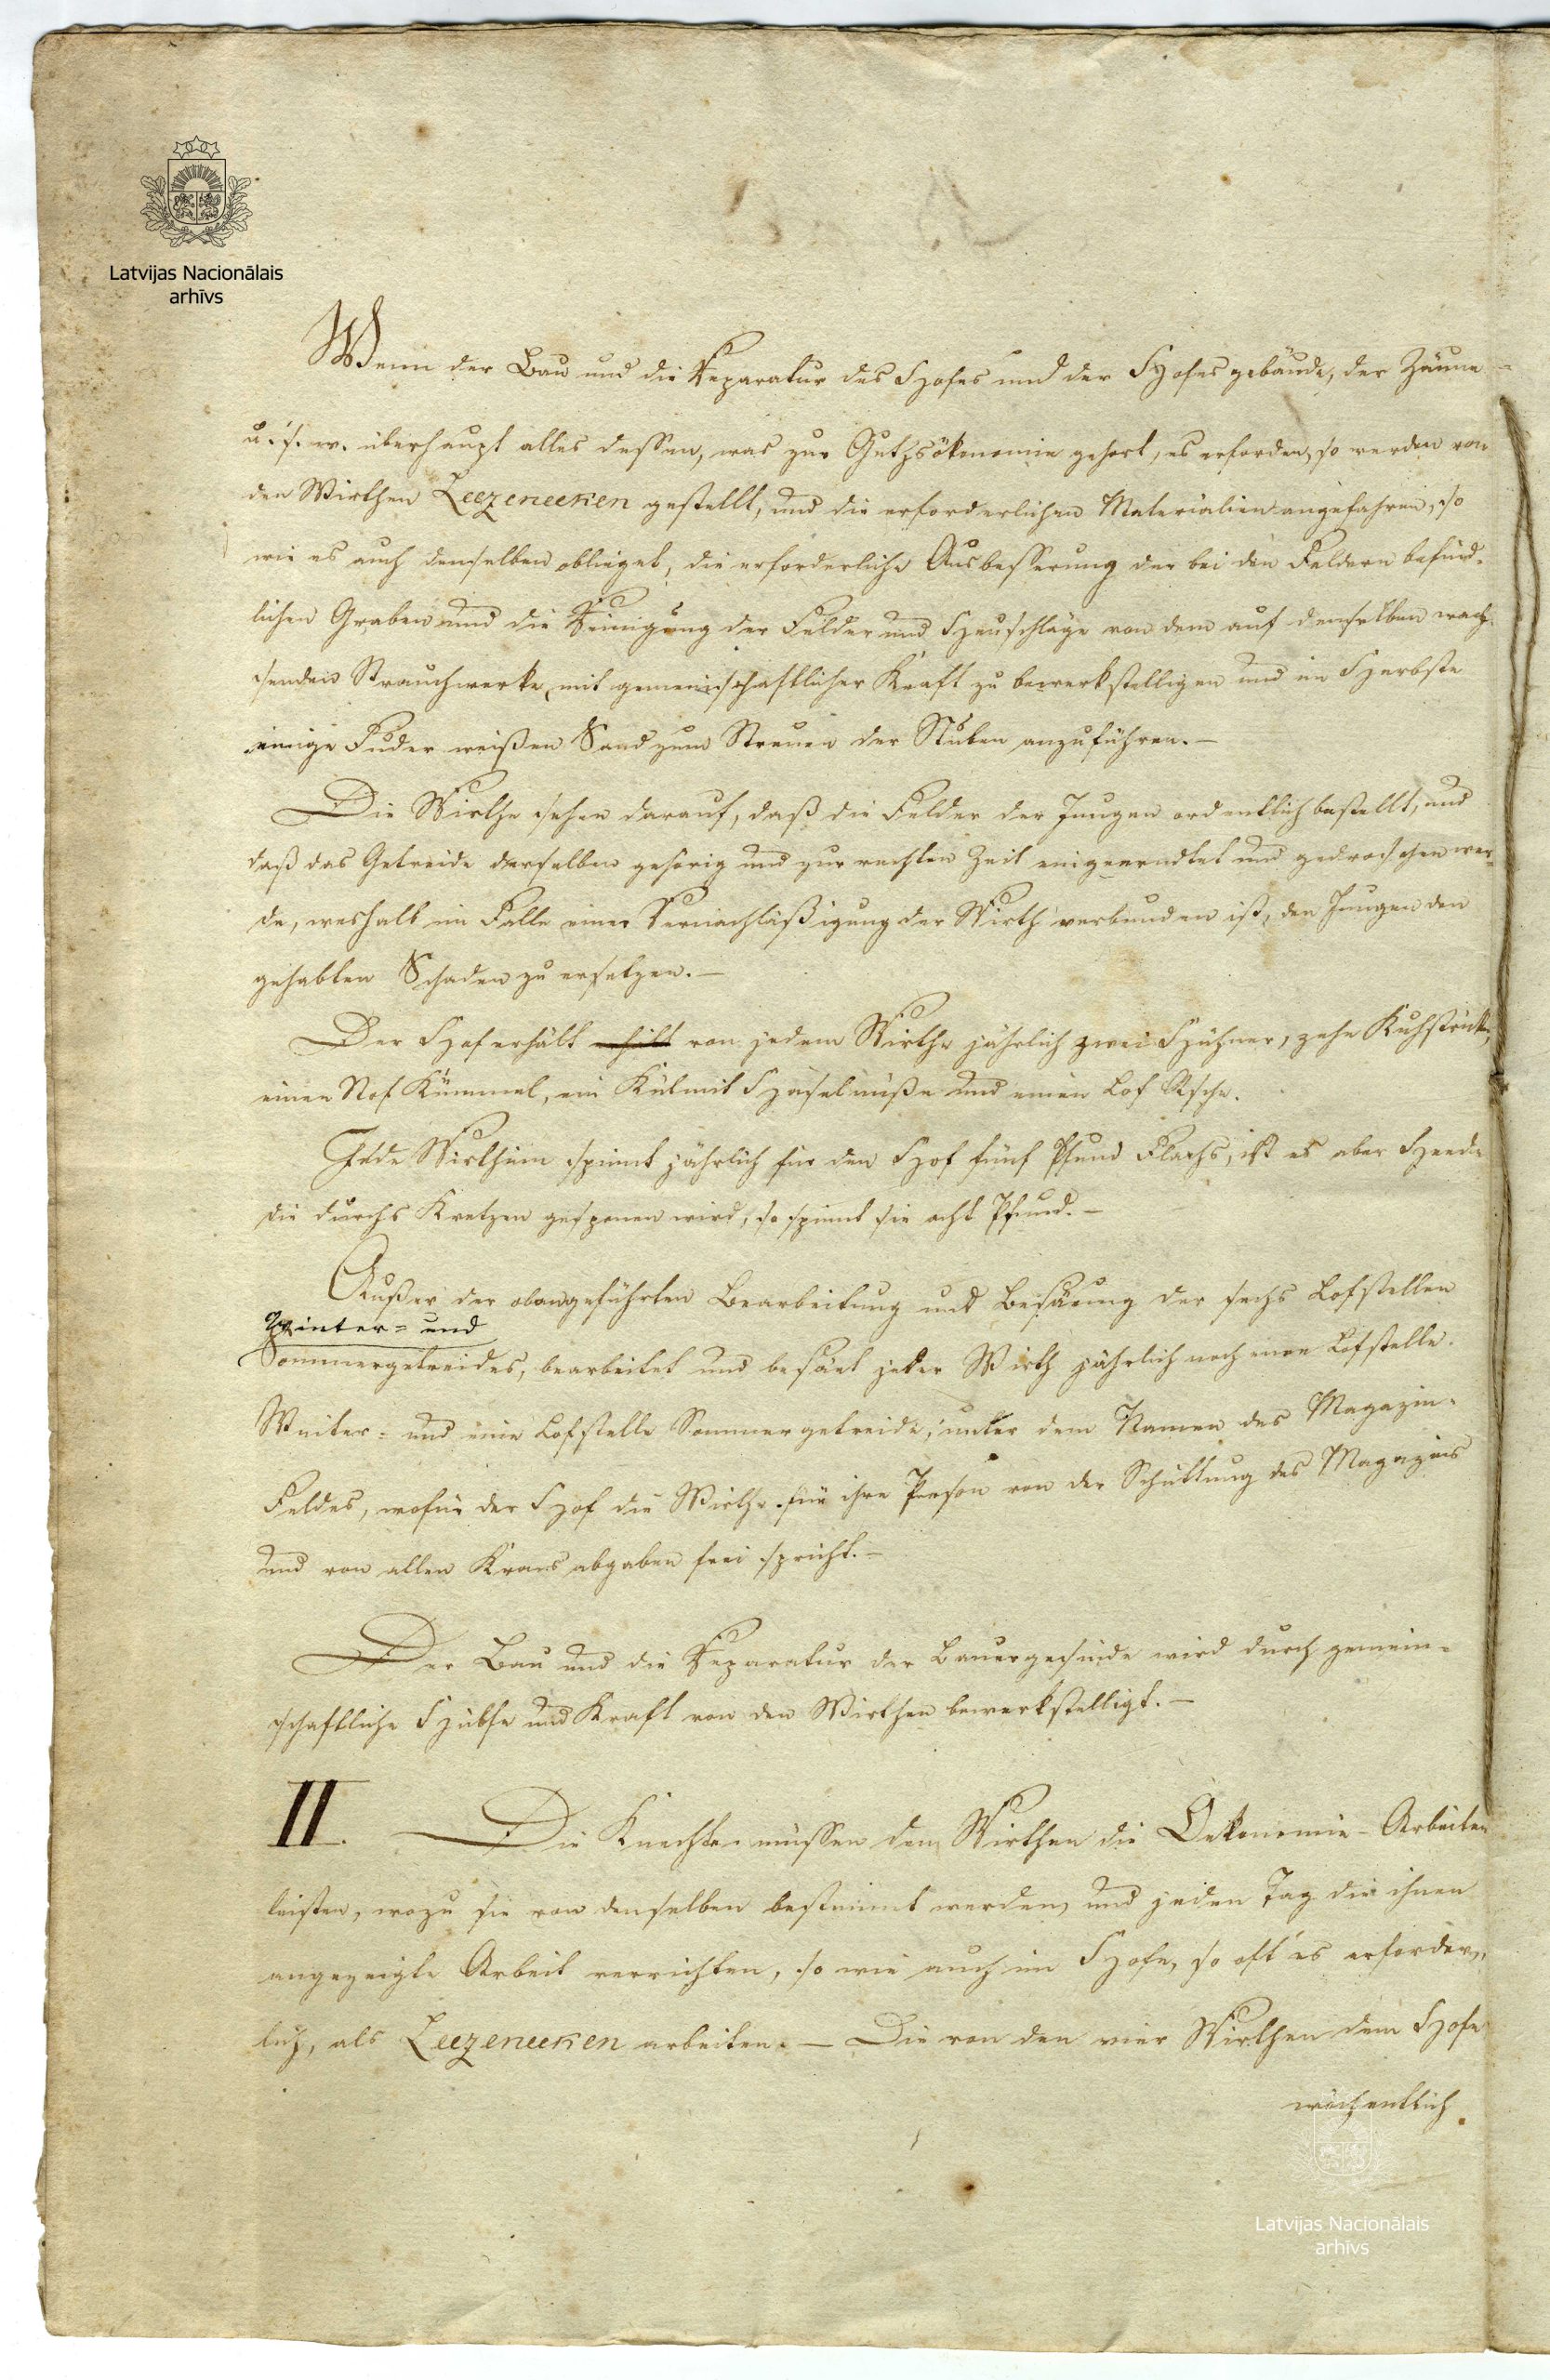 Latvijas Nacionālais
arhīvs
Wenn der Bau und die Reparatur des Hofes und der Hofesgebäude, der Zäune
u. s. w. überhaupt alles dessen, was zur Guthsökonomie gehört, es erfordern, so werden von
den Wirthen Leezeneeken gestellt, und die erforderlichen Materialien angefahren, so
wie es auch denselben oblieget, die erforderliche Ausbesserung der bei den Feldern befind-
lichen Graben und die Reinigung der Felder und Heuschläge von dem auf denselben wach-
senden Strauchwerke, mit gemeinschaftlicher Kraft zu bewerkstelligen und im Herbste
einige Fuder weißen Sand zum Streuen der Stuben anzuführen. —
Die Wirthe sehen darauf, daß die Felder der Jungen ordentlich bestellt, und
daß das Getreide derselben gehörig und zur rechten Zeit eingeerndtet und gedroschen wer-
de, weshalb im Falle einer Vernachläßigung der Wirth verbunden ist, den Jungen den
gehabten Schaden zu ersetzen. —
Der Hof erhält von jedem Wirthe jährlich zwei Hühner, zehn Kuhstricke,
einen Stof Kümmel, ein Külmit Haselnüße und einen Lof Asche.
Jede Wirthin spinnt jährlich für den Hof fünf Pfund Flachs, ist es aber Heede
die durchs Kratzen gesponen wird, so spinnt sie acht Pfund. —
Außer der obangeführten Bearbeitung und Besäung der sechs Lofstellen
Winter- und
Sommergetreides, bearbeitet und besäet jeder Wirth jährlich noch eine Lofstelle
Winter- und eine Lofstelle Sommergetreide, unter dem Namen des Magazin-
Feldes, wofür der Hof die Wirthe für ihre Person von der Schüttung des Magazins
und von allen Kronsabgaben frei spricht. —
Der Bau und die Reparatur der Bauergesinde wird durch gemein-
schaftliche Hülfe und Kraft von den Wirthen bewerkstelligt. —
II. Die Knechte müssen den Wirthen die Oekonomie-Arbeiten
leisten, wozu sie von denselben bestimmt werden, und jeden Tag die ihnen
angezeigte Arbeit verrichten, so wie auch im Hofe, so oft es erforder-
lich, als Leezeneeken arbeiten. — Die von den vier Wirthen dem Hofe
wöchentlich
Latvijas Nacionālais
arhīvs